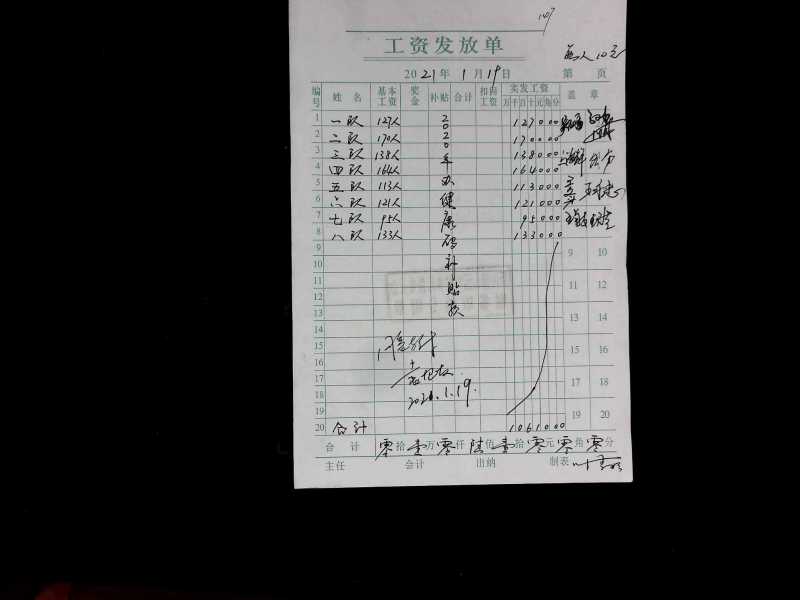 工资发放单
每人10元
2021年1月19日 第 页
编号 姓名 基本工资 奖金 补贴 合计 扣回工资 实发工资 盖章
万千百十元角分
1 一队 127人 127000
2 二队 170人 170000
3 三队 138人 138000
4 四队 164人 164000
5 五队 113人 113000
6 六队 121人 121000
7 七队 95人 95000
8 八队 133人 133000
2020年办健康码补贴款
9 9 10
10
11 11 12
12
13 13 14
14
15 15 16
16
17 17 18
18
19 19 20
2021.1.19.
20 合计 1061000
合计 零拾壹万零仟陆佰壹拾零元零角零分
主任 会计 出纳 制表